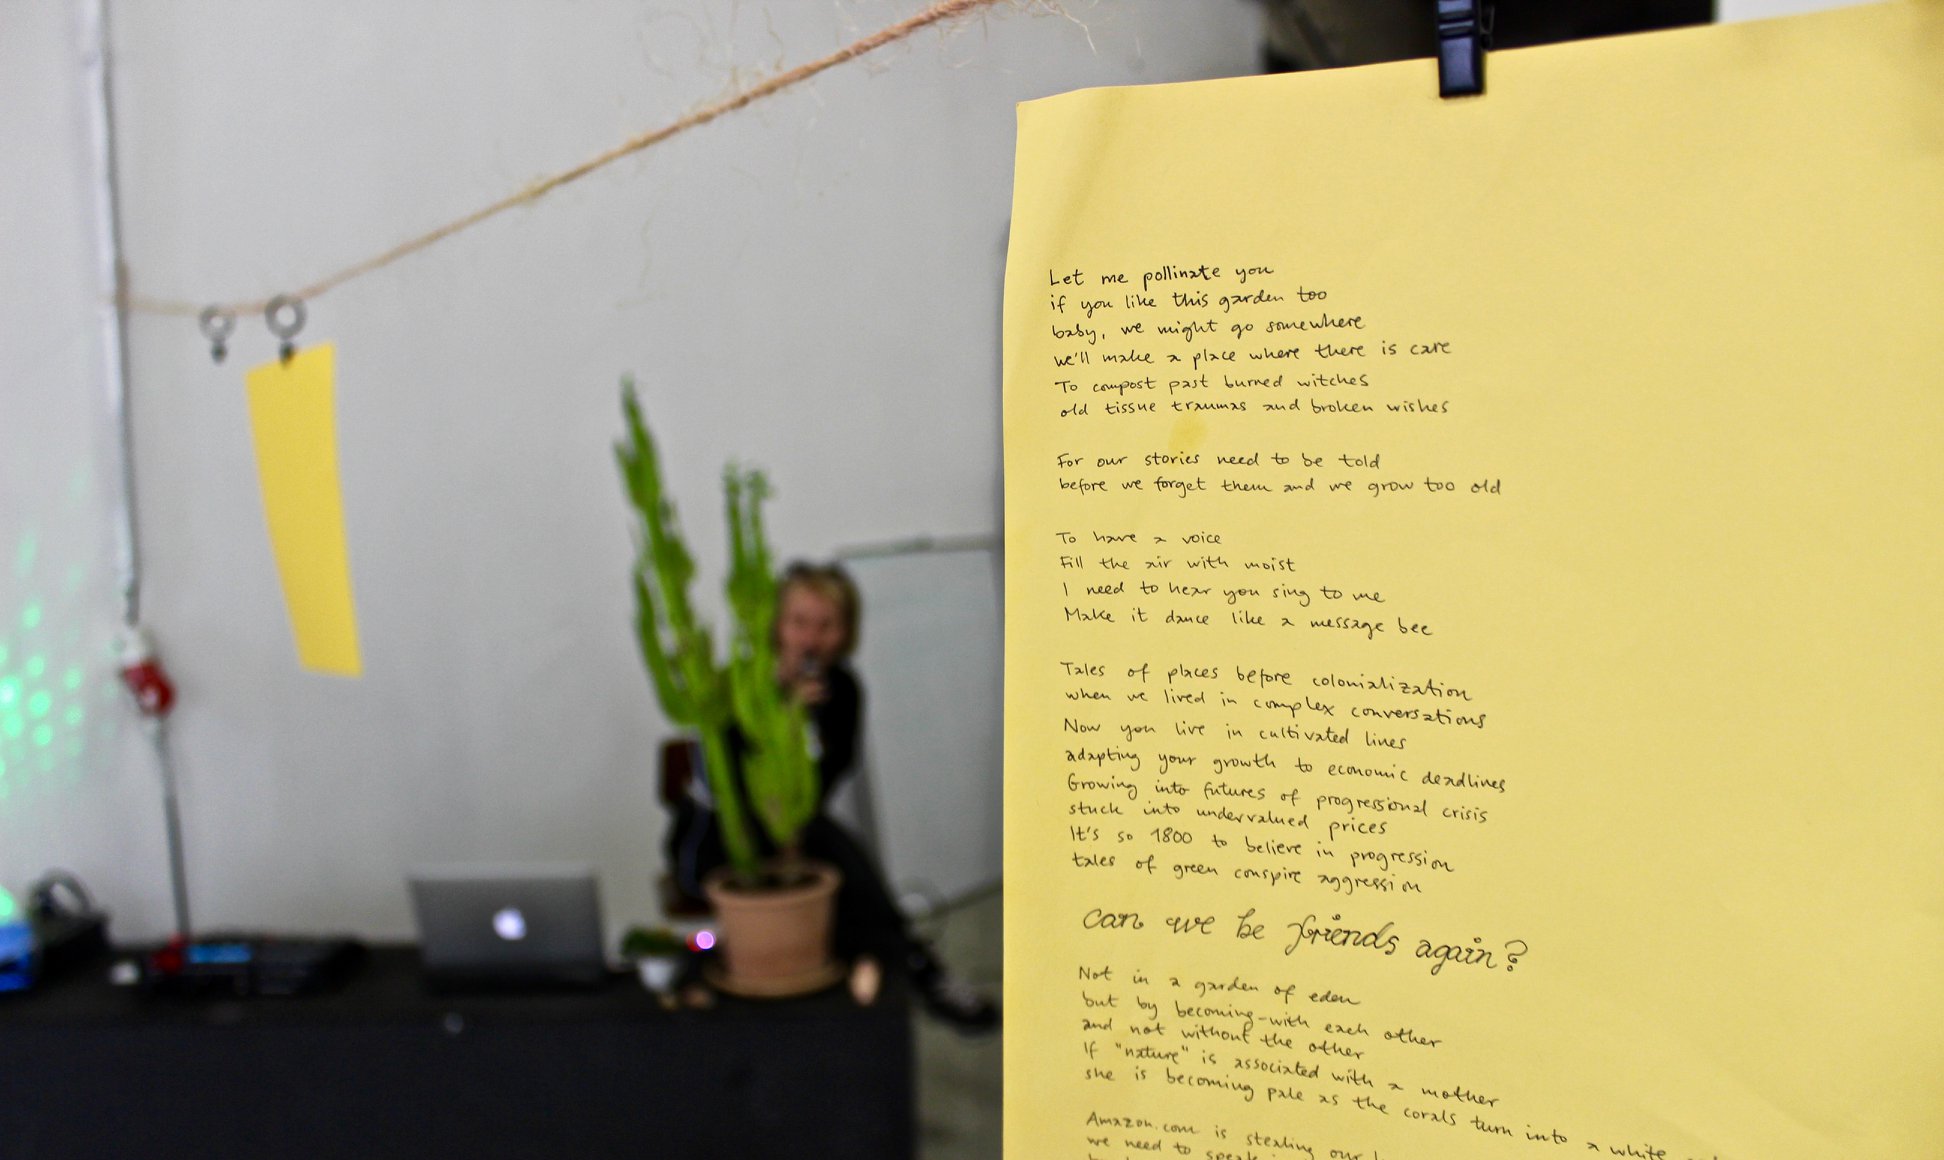 Let me pollinate you
if you like this garden too
baby, we might go somewhere
we'll make a place where there is care
To compost past burned witches
old tissue traumas and broken wishes
For our stories need to be told
before we forget them and we grow too old
To have a voice
Fill the air with moist
I need to hear you sing to me
Make it dance like a message bee
Tales of places before colonialization
when we lived in complex conversations
Now you live in cultivated lines
adapting your growth to economic deadlines
Growing into futures of progressional crisis
stuck into undervalued prices
It's so 1800 to believe in progression
tales of green conspire aggression
can we be friends again?
Not in a garden of eden
but by becoming-with each other
and not without the other
If "nature" is associated with a mother
she is becoming pale as the corals turn into a white
Amazon.com is stealing our
we need to speak